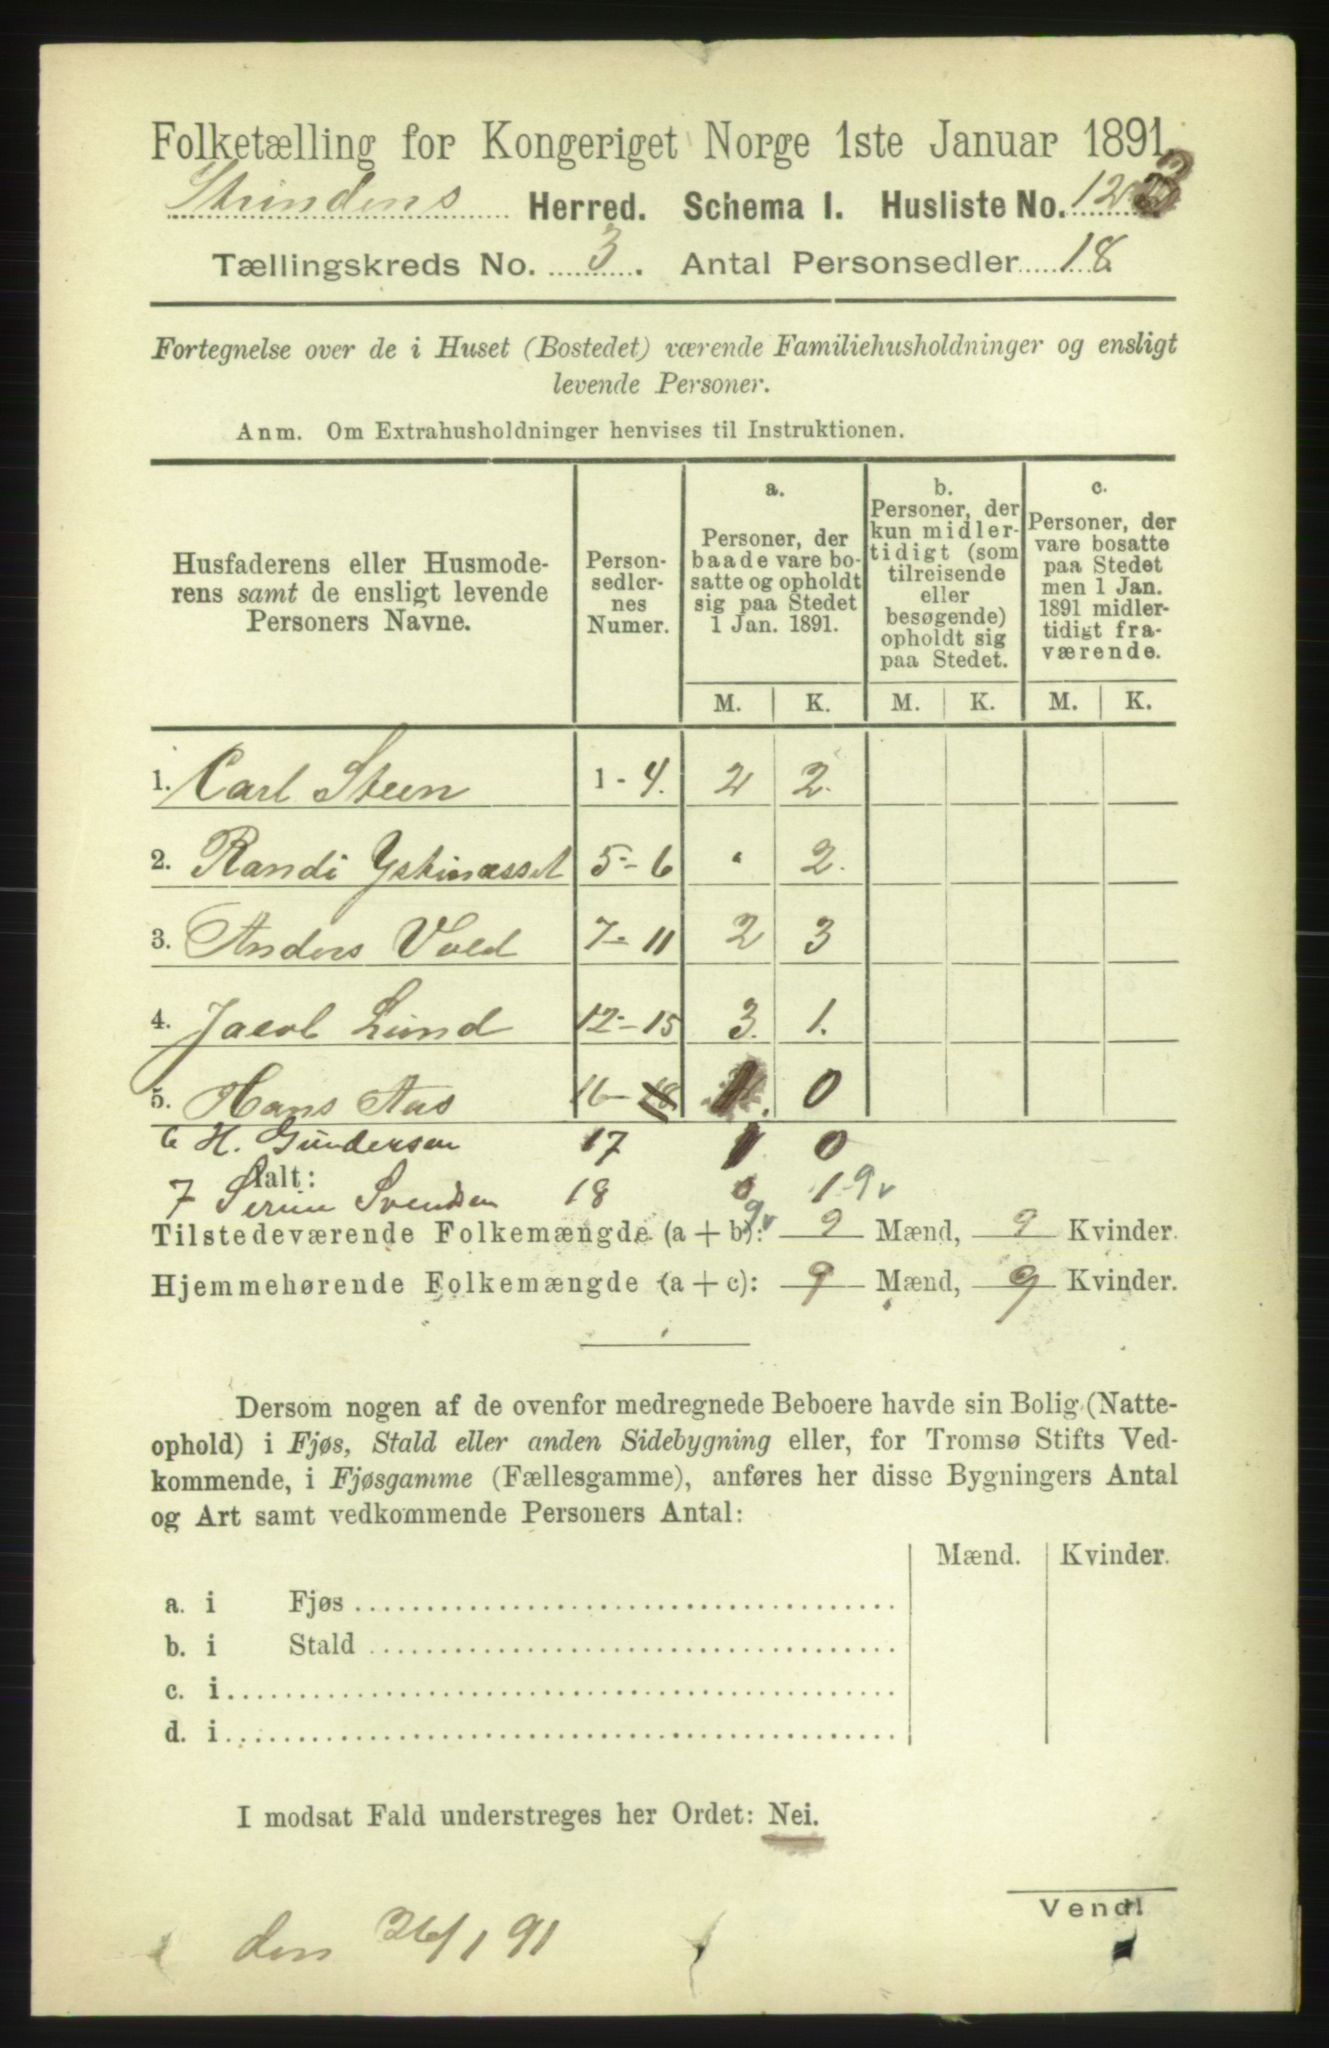 Folketælling for Kongeriget Norge 1ste Januar 1891.
Strindens Herred. Schema I. Husliste No. 123
Tællingskreds No. 3. Antal Personsedler 18
Fortegnelse over de i Huset (Bostedet) værende Familiehusholdninger og ensligt
levende Personer.
Anm. Om Extrahusholdninger henvises til Instruktionen.
Husfaderens eller Husmode-
rens samt de ensligt levende
Personers Navne.
Person-
sedler-
nes
Numer.
a.
Personer, der
baade vare bo-
satte og opholdt
sig paa Stedet
1 Jan. 1891.
b.
Personer, der
kun midler-
tidigt (som
tilreisende
eller
besøgende)
opholdt sig
paa Stedet.
c.
Personer, der
vare bosatte
paa Stedet
men 1 Jan.
1891 midler-
tidigt fra-
værende.
M. K. M. K. M. K.
1. Carl Steen 1-4. 2 2.
2. Randi 5-6 • 2.
3. Anders Vold 7-11 2 3
4. Jacob Lund 12-15 3. 1.
5. Hans Aas 16-18 1. 0
6 H. Gundersen 17 1 0
Ialt:
7 Svendsen 18 0 1 9v
9v
Tilstedeværende Folkemængde (a + b): 9 Mænd, 9 Kvinder.
Hjemmehørende Folkemængde (a + c): 9 Mænd, 9 Kvinder.
Dersom nogen af de ovenfor medregnede Beboere havde sin Bolig (Natte-
ophold) i Fjøs, Stald eller anden Sidebygning eller, for Tromsø Stifts Ved-
kommende, i Fjøsgamme (Fællesgamme), anføres her disse Bygningers Antal
og Art samt vedkommende Personers Antal:
Mænd. Kvinder.
a. i Fjøs
b. i Stald
c. i
d. i
I modsat Fald understreges her Ordet: Nei.
Vend!
den 26/1 91